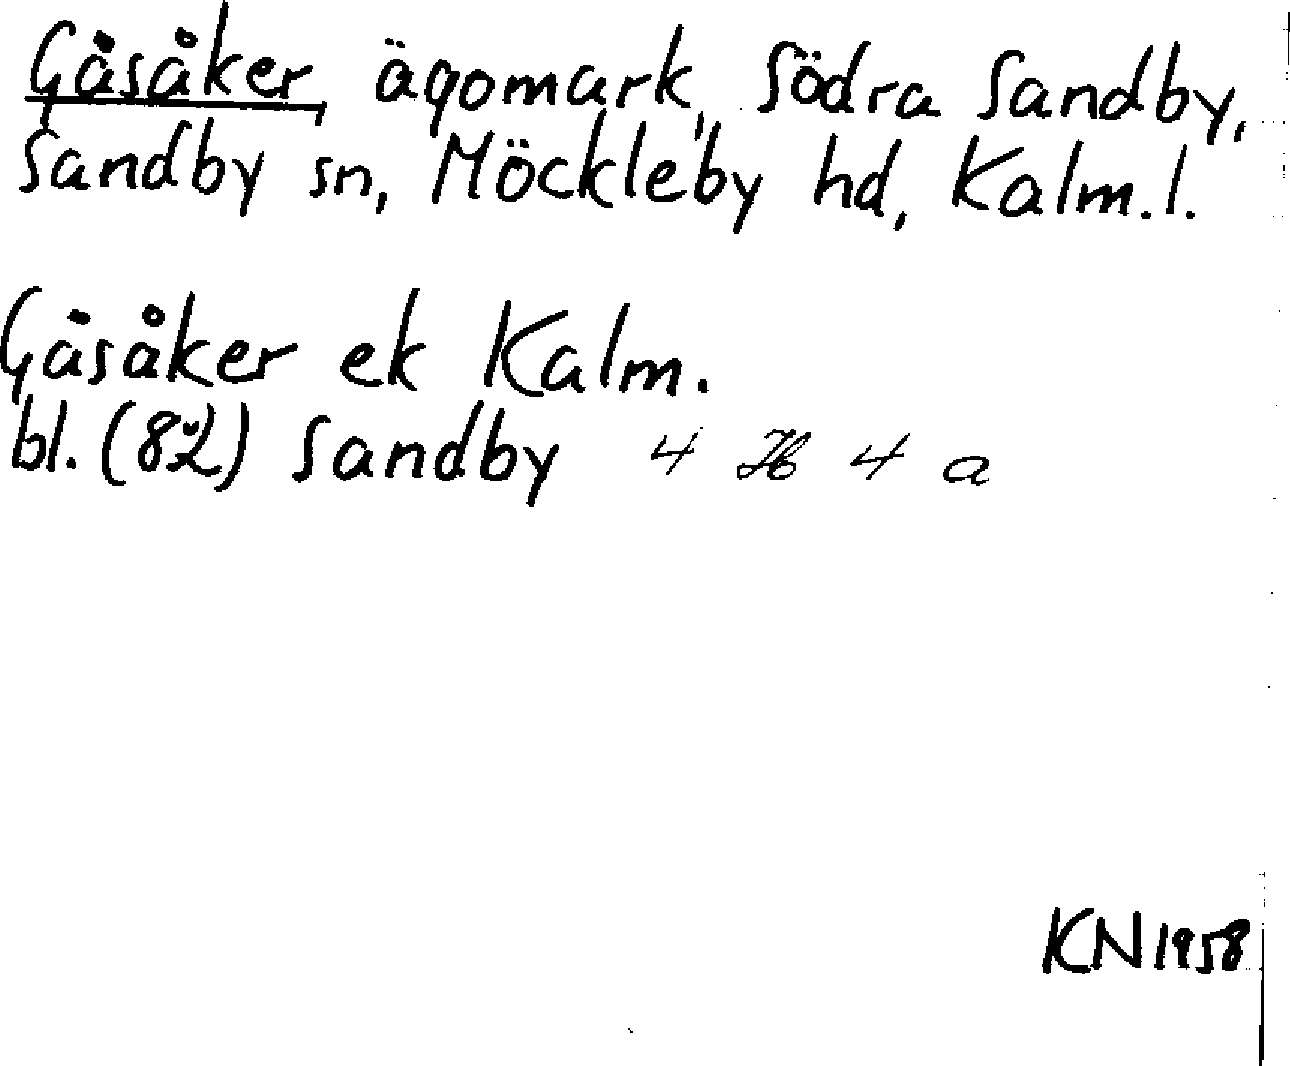 Gåsåker, ägomark, Södra Sandby,
Sandby sn, Möckleby hd, Kalm.l.
Gåsåker ek Kalm.
bl. (82) Sandby 4 H 4 a
KN 1958